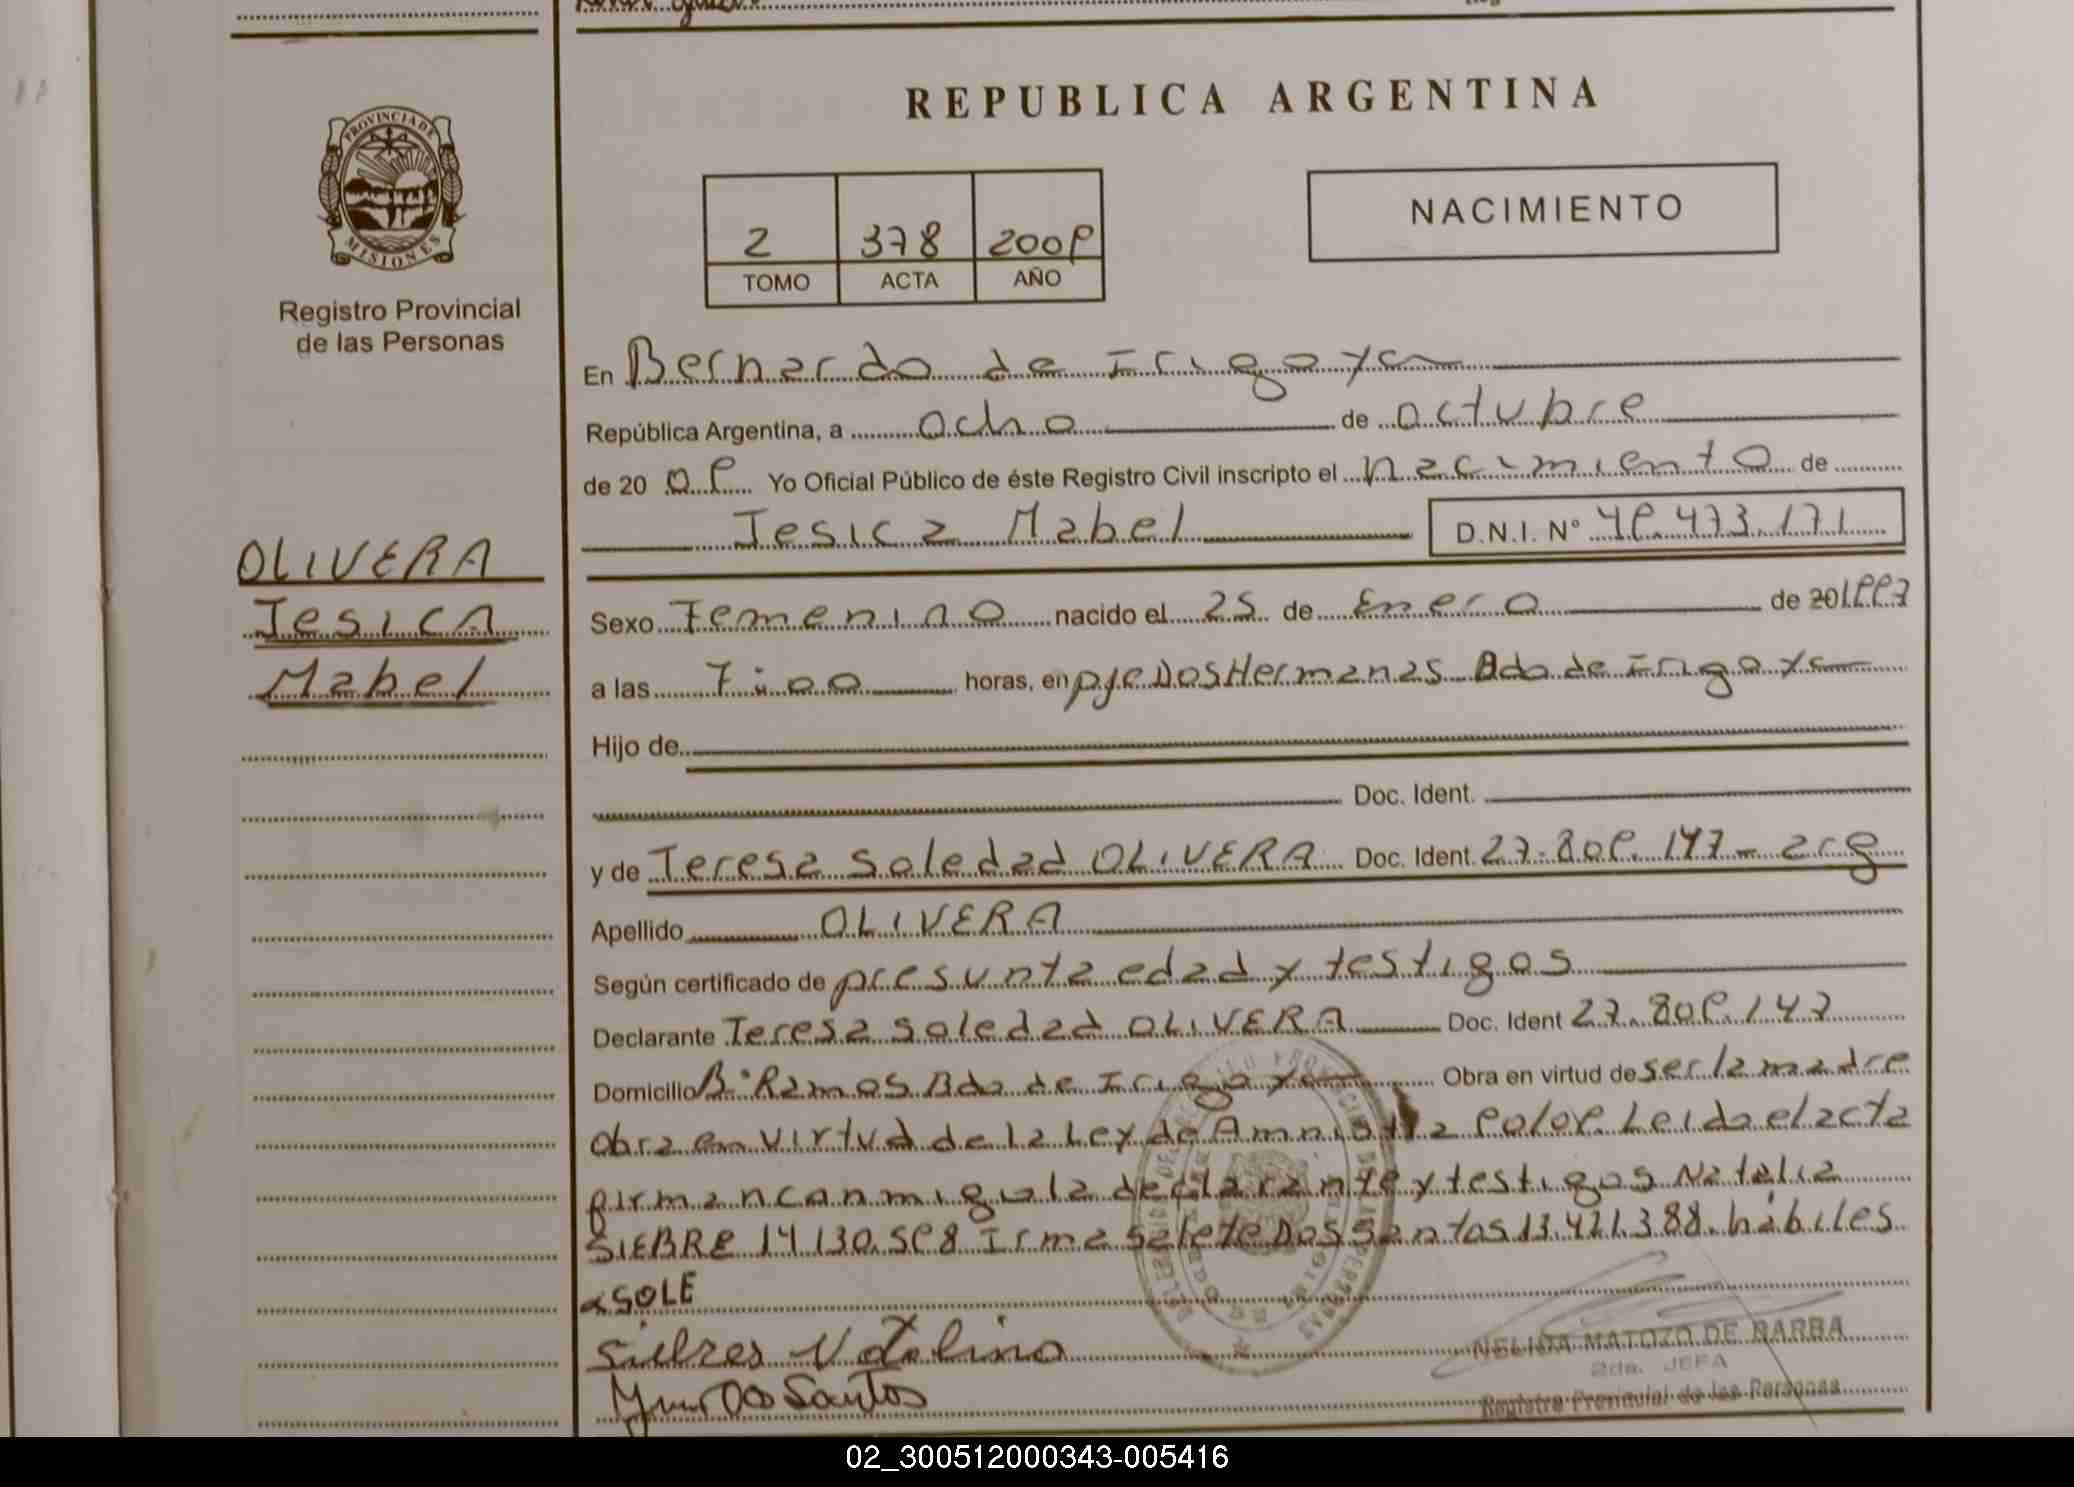 REPUBLICA ARGENTINA
PROVINCIA DE
MISIONES
NACIMIENTO
2 378 2009
TOMO ACTA AÑO
Registro Provincial
de las Personas
En Bernardo de Irigoyen
República Argentina, a ocho de octubre
de 20 09 Yo Oficial Público de éste Registro Civil inscripto el nacimiento de
Jesica Mabel D.N.I. Nº 49.473.171
OLIVERA
Jesica
Mabel
Sexo Femenino nacido el 25 de Enero de 20 1997
a las 7:00 horas, en pje Dos Hermanas Bdo de Irigoyen
Hijo de
Doc. Ident.
y de Teresa Soledad OLIVERA Doc. Ident. 27.809.147 - arg
Apellido OLIVERA
Según certificado de presunta edad y testigos
Declarante Teresa Soledad OLIVERA Doc. Ident 27.809.147
Domicilio Bº Ramos Bdo de Irigoyen Obra en virtud de ser la madre
Obra en virtud de la Ley de Amnistia 90/09. Leida el acta
firman conmigo la declarante y testigos Natalia
SIEBRE 14.130.598 Irma Salete Dos Santos 13.421.388. hábiles
SOLE
NELIDA MATOZO DE BARBA
2da. JEFA
Registro Provincial de las Personas
Dos Santos
02_300512000343-005416